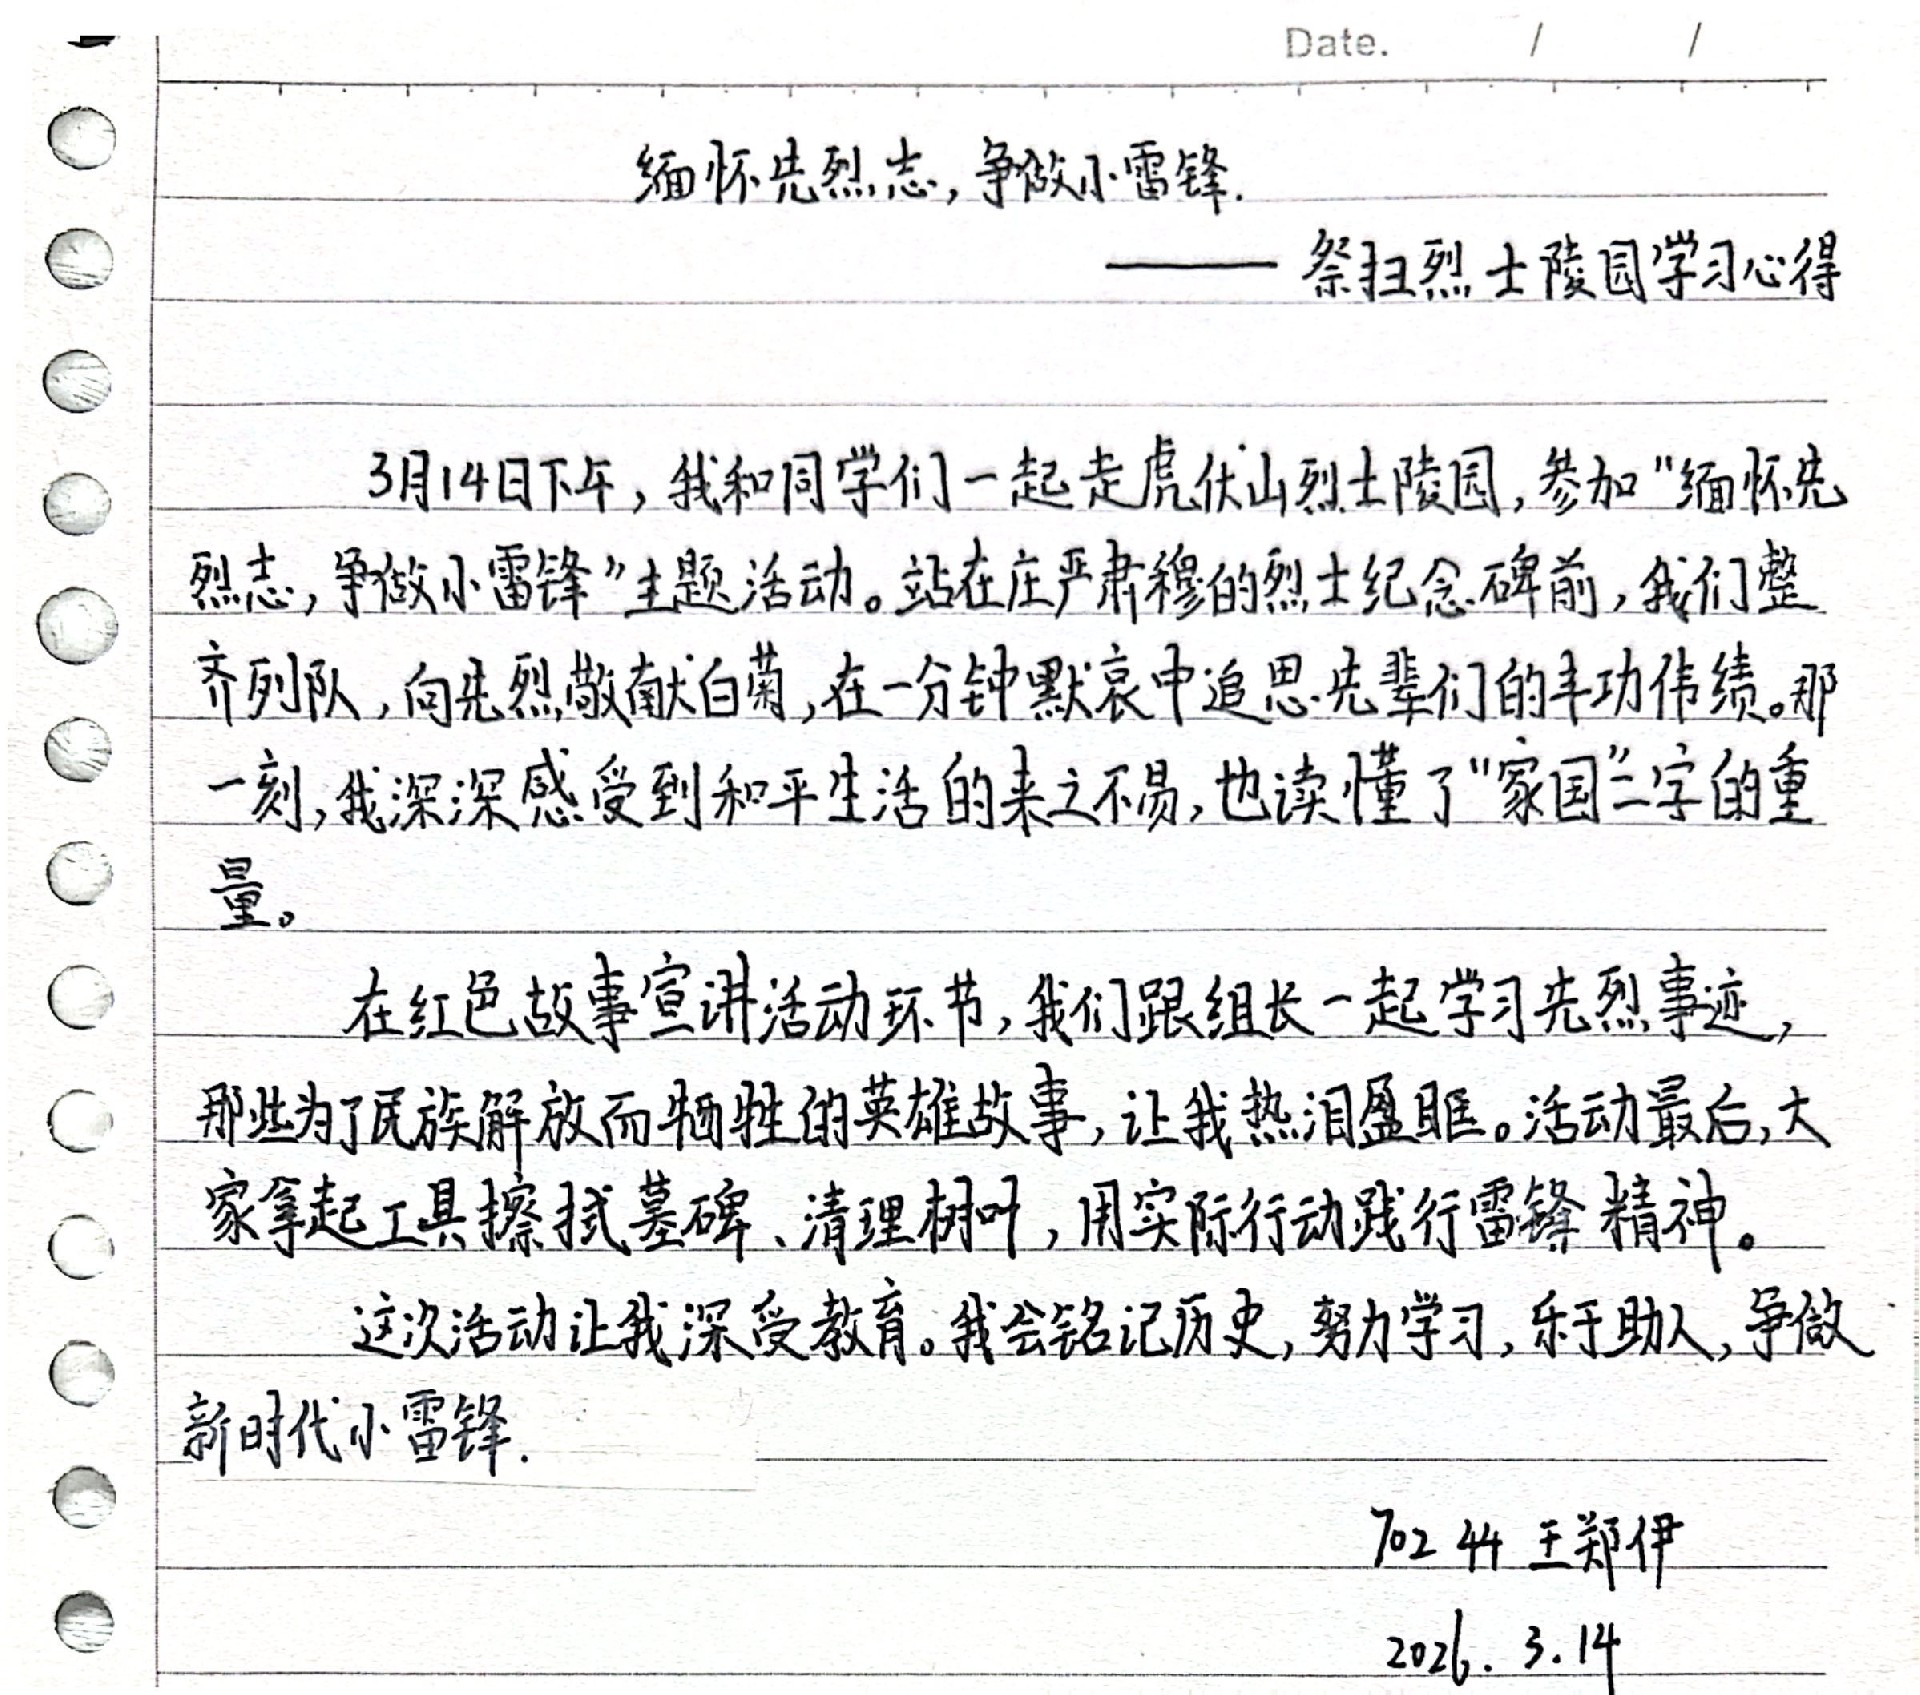 Date. / /
缅怀先烈志,争做小雷锋.
—— 祭扫烈士陵园学习心得
3月14日下午,我和同学们一起走虎伏山烈士陵园,参加"缅怀先
烈志,争做小雷锋"主题活动。站在庄严肃穆的烈士纪念碑前,我们整
齐列队,向先烈敬献白菊,在一分钟默哀中追思先辈们的丰功伟绩。那
一刻,我深深感受到和平生活的来之不易,也读懂了"家国"二字的重
量。
在红色故事宣讲活动环节,我们跟组长一起学习先烈事迹,
那些为了民族解放而牺牲的英雄故事,让我热泪盈眶。活动最后,大
家拿起工具擦拭墓碑、清理树叶,用实际行动践行雷锋精神。
这次活动让我深受教育。我会铭记历史,努力学习,乐于助人,争做
新时代小雷锋.
702 44 王郑伊
2026. 3.14